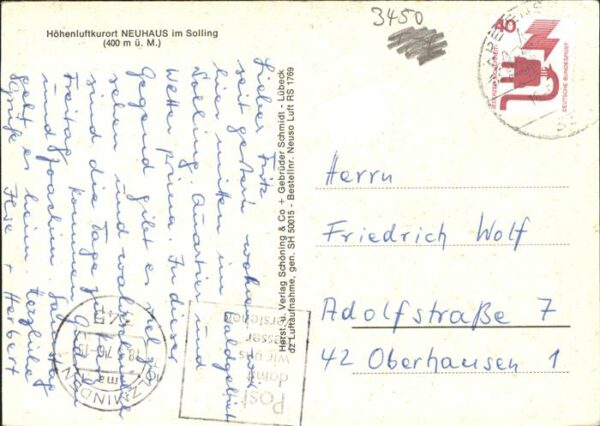 Höhenluftkurort NEUHAUS im Solling
(400 m ü. M.)
3450
40
JEDERZEIT SICHERHEIT
DEUTSCHE BUNDESPOST
Lieber Fritz
seit gestern wohnen wir
hier mitten im Waldgebiet
Solling. Quartier und
Wetter prima. In dieser
Gegend gibt es viel zu
sehen und
sind die Tage
Freitag kommen
und Joachim. Samstag
geht es heim. Herzliche
Grüße Ilse + Herbert
Herst. u. Verlag Schöning & Co + Gebrüder Schmidt - Lübeck
dz Luftaufnahme, gen. SH 50015 - Bestellnr. Neuso Luft RS 1769
Herrn
Friedrich Wolf
Adolfstraße 7
42 Oberhausen 1
HOLZMINDEN
345
Post
damit
wir uns
besser
verstehen